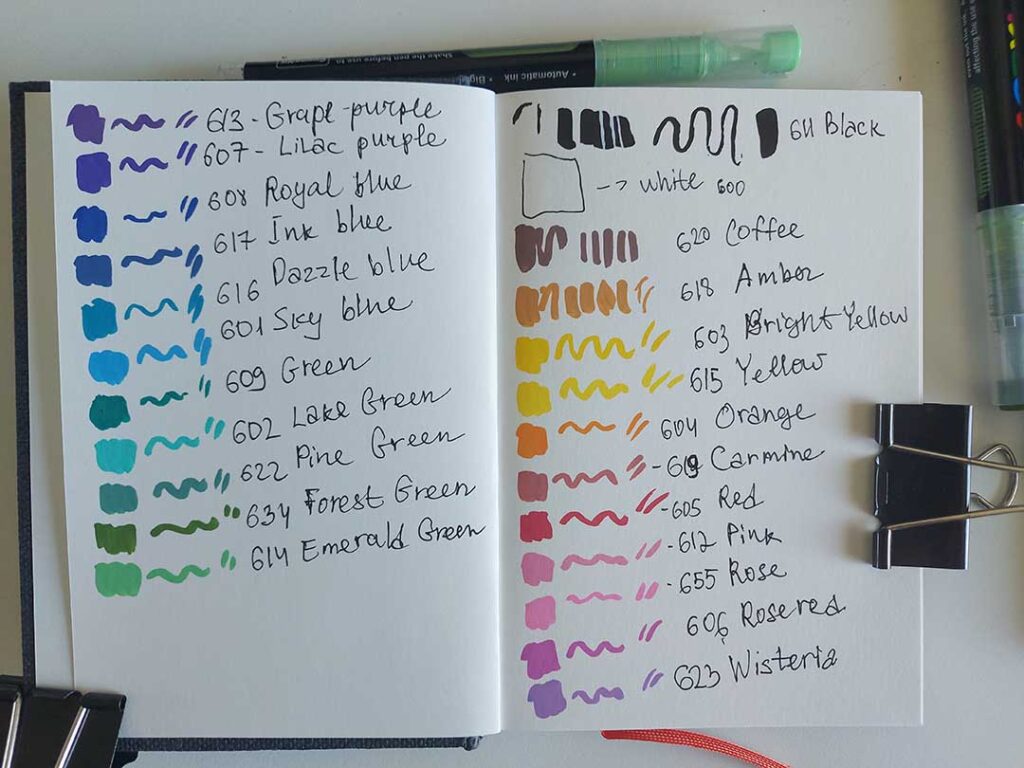 Shake the pen before use to
• Automatic ink
• Big
613 - Grape-purple
607 - Lilac purple
608 Royal blue
617 Ink blue
616 Dazzle blue
601 Sky blue
609 Green
602 Lake Green
622 Pine Green
634 Forest Green
614 Emerald Green
611 Black
--> white 600
620 Coffee
618 Amber
603 Bright Yellow
615 Yellow
604 Orange
-619 Carmine
-605 Red
-612 Pink
-655 Rose
606 Rose red
623 Wisteria